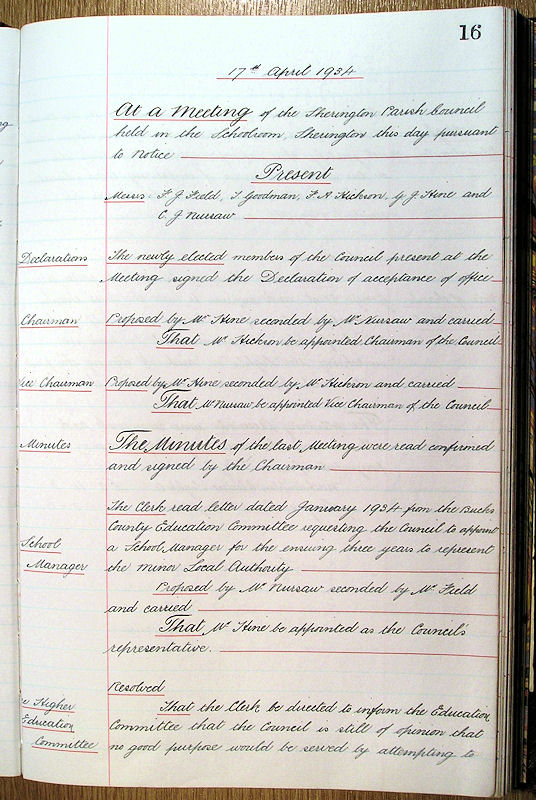 16
17th April 1934
At a Meeting of the Sherington Parish Council
held in the Schoolroom, Sherington this day pursuant
to Notice
Present
Messrs: F. J. Field, S Goodman, F. A Hickson, G J. Hine and
C. J Nursaw
Declarations
The newly elected members of the Council present at the
Meeting signed the Declaration of acceptance of office
Chairman
Proposed by Mr Hine seconded by Mr Nursaw and carried
That Mr Hickson be appointed Chairman of the Council
Vice Chairman
Proposed by Mr Hine seconded by Mr Hickson and carried
That Mr Nursaw be appointed Vice Chairman of the Council
Minutes
The Minutes of the last Meeting were read confirmed
and signed by the Chairman
The Clerk read letter dated January 1934 from the Bucks
County Education Committee requesting the Council to appoint
School
a School Manager for the ensuing three years to represent
Manager
the Minor Local Authority
Proposed by Mr Nursaw seconded by Mr Field
and carried
That Mr Hine be appointed as the Council's
representative.
Resolved
Higher
That the Clerk be directed to inform the Education
Education
Committee that the Council is still of opinion that
Committee
no good purpose would be served by attempting to